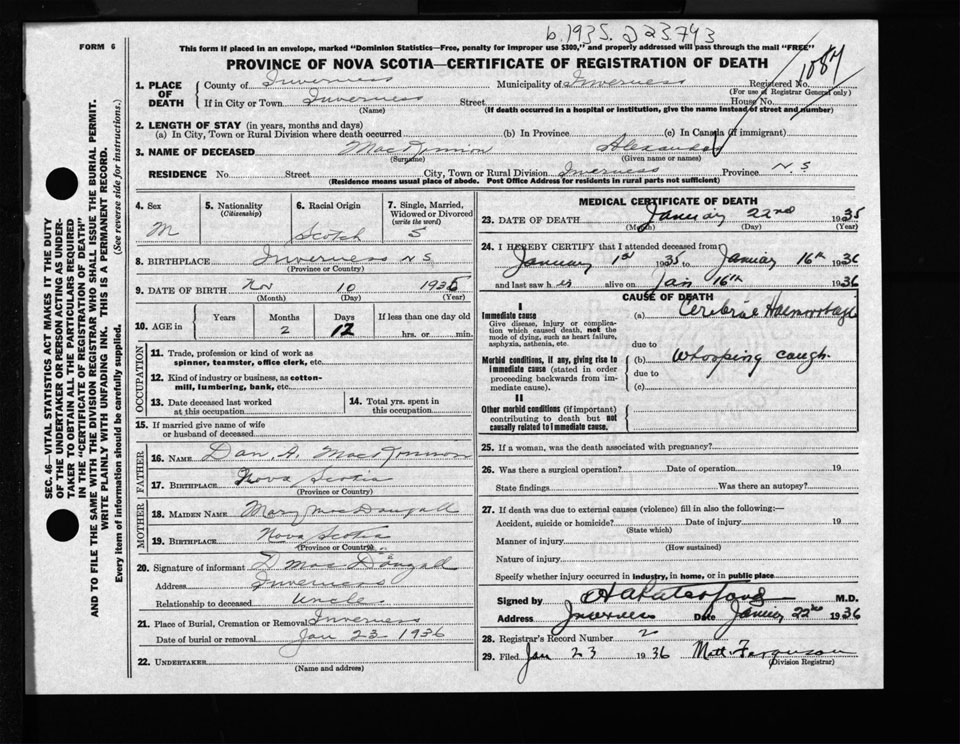 b. 1935. 223743
FORM 6
This form if placed in an envelope, marked "Dominion Statistics—Free, penalty for improper use $300," and properly addressed will pass through the mail "FREE"
PROVINCE OF NOVA SCOTIA—CERTIFICATE OF REGISTRATION OF DEATH
1087
1. PLACE OF DEATH
County of Inverness Municipality of Inverness Registered No.
(For use of Registrar General only)
If in City or Town Inverness Street House No.
(Name) (If death occurred in a hospital or institution, give the name instead of street and number)
2. LENGTH OF STAY (in years, months and days)
(a) In City, Town or Rural Division where death occurred (b) In Province (c) In Canada (if immigrant)
3. NAME OF DECEASED MacKinnon Alexander
(Surname) (Given name or names)
RESIDENCE No. Street City, Town or Rural Division Inverness Province N.S
(Residence means usual place of abode. Post Office Address for residents in rural parts not sufficient)
4. Sex M
5. Nationality (Citizenship)
6. Racial Origin Scotch
7. Single, Married, Widowed or Divorced (write the word) S
8. BIRTHPLACE Inverness N S
(Province or Country)
9. DATE OF BIRTH Nov 10 1935
(Month) (Day) (Year)
10. AGE in Years Months Days If less than one day old
2 12 hrs. or min.
OCCUPATION
11. Trade, profession or kind of work as spinner, teamster, office clerk, etc.
12. Kind of industry or business, as cotton-mill, lumbering, bank, etc.
13. Date deceased last worked at this occupation
14. Total yrs. spent in this occupation
15. If married give name of wife or husband of deceased
FATHER
16. NAME Dan. A. MacKinnon
17. BIRTHPLACE Nova Scotia
(Province or Country)
MOTHER
18. MAIDEN NAME Mary MacDougall
19. BIRTHPLACE Nova Scotia
(Province or Country)
20. Signature of informant D MacDougall
Address Inverness
Relationship to deceased Uncle
21. Place of Burial, Cremation or Removal Inverness
Date of burial or removal Jan 23 1936
22. UNDERTAKER
(Name and address)
MEDICAL CERTIFICATE OF DEATH
23. DATE OF DEATH January 22nd 1935
(Month) (Day) (Year)
24. I HEREBY CERTIFY that I attended deceased from
January 1st 1935 to January 16th 1936
and last saw h alive on Jan 16th
CAUSE OF DEATH
I
Immediate cause
Give disease, injury or complication which caused death, not the mode of dying, such as heart failure, asphyxia, asthenia, etc.
(a) Cerebral Haemorrhage
due to
Morbid conditions, if any, giving rise to immediate cause (stated in order proceeding backwards from immediate cause).
(b) Whooping cough
due to
(c)
II
Other morbid conditions (if important) contributing to death but not causally related to immediate cause.
25. If a woman, was the death associated with pregnancy?
26. Was there a surgical operation? Date of operation 19
State findings Was there an autopsy?
27. If death was due to external causes (violence) fill in also the following:—
Accident, suicide or homicide? Date of injury 19
(State which)
Manner of injury
(How sustained)
Nature of injury
Specify whether injury occurred in industry, in home, or in public place
Signed by M.D.
Address Inverness Date January 22nd 1936
28. Registrar's Record Number 2
29. Filed Jan 23 1936 Matt. Ferguson
(Division Registrar)
SEC. 46—VITAL STATISTICS ACT MAKES IT THE DUTY
OF THE UNDERTAKER OR PERSON ACTING AS UNDER-
TAKER TO OBTAIN ALL THE PARTICULARS REQUIRED
IN THE "CERTIFICATE OF REGISTRATION OF DEATH"
AND TO FILE THE SAME WITH THE DIVISION REGISTRAR WHO SHALL ISSUE THE BURIAL PERMIT.
WRITE PLAINLY WITH UNFADING INK. THIS IS A PERMANENT RECORD.
Every item of information should be carefully supplied. (See reverse side for instructions.)